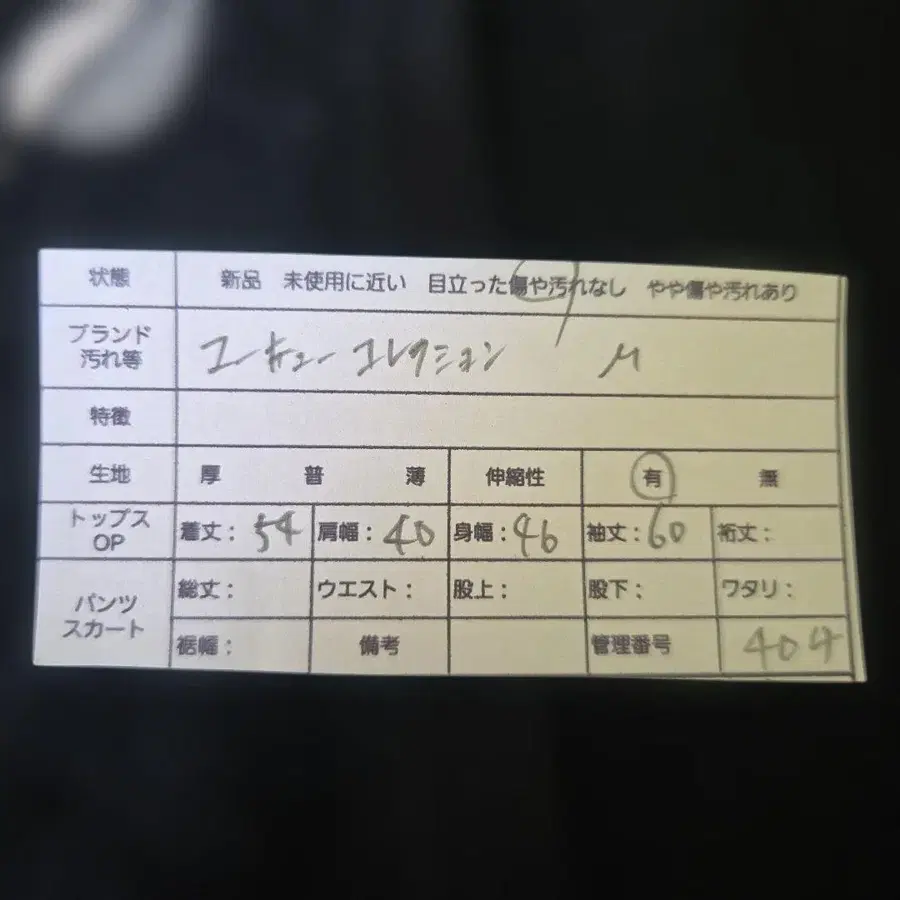 状態 新品 未使用に近い 目立った傷や汚れなし やや傷や汚れあり
ブランド
汚れ等
ユーキューコレクション M
特徴
生地 厚 普 薄 伸縮性 有 無
トップス
OP
着丈: 54 肩幅: 40 身幅: 46 袖丈: 60 裄丈:
パンツ
スカート
総丈: ウエスト: 股上: 股下: ワタリ:
裾幅: 備考 管理番号 404